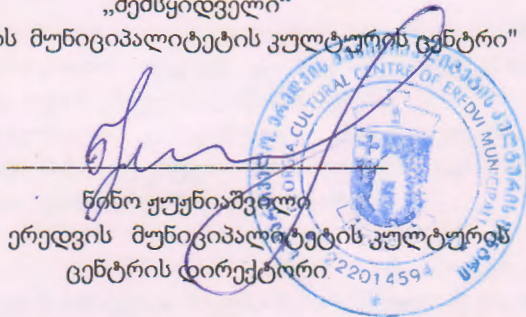 „შემსყიდველი“
ს მუნიციპალიტეტის კულტურის ცენტრი"
ნინო ჟუჟნიაშვილი
ერედვის მუნიციპალიტეტის კულტურის
ცენტრის დირექტორი
CULTURAL CENTRE OF EREDVI MUNICIPALITY